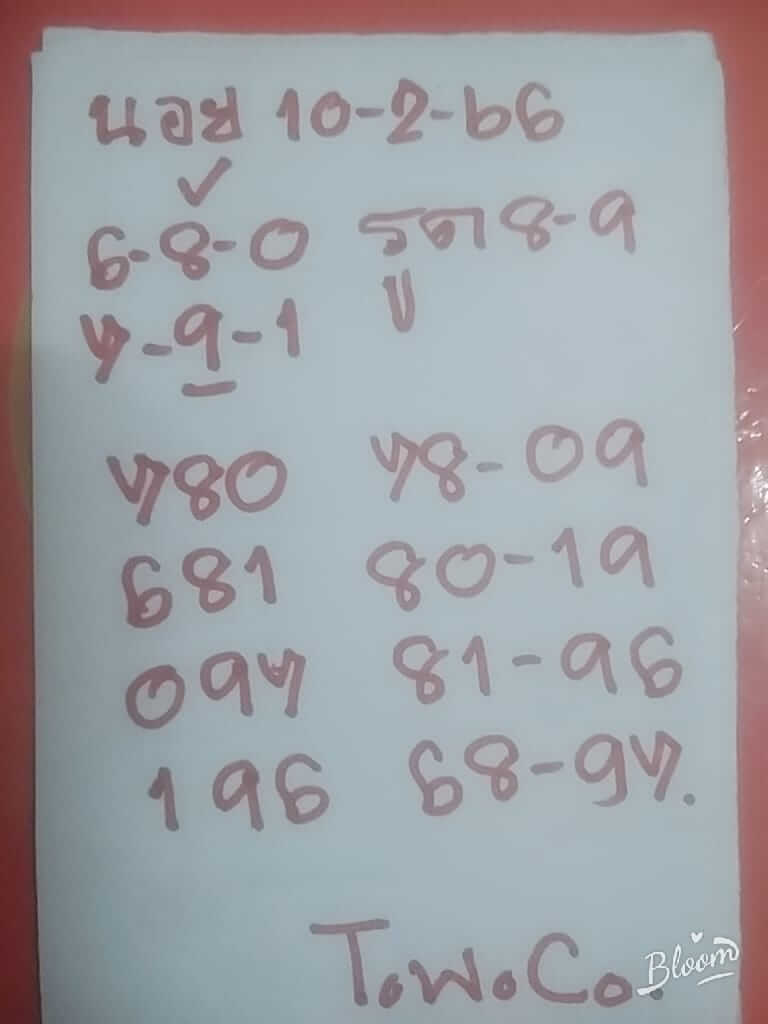 นอย 10-2-66
✓
6-8-0 รูด 8-9
7-9-1 ป
780 78-09
681 80-19
097 81-96
196 68-97.
T.W.Co.
Bloom